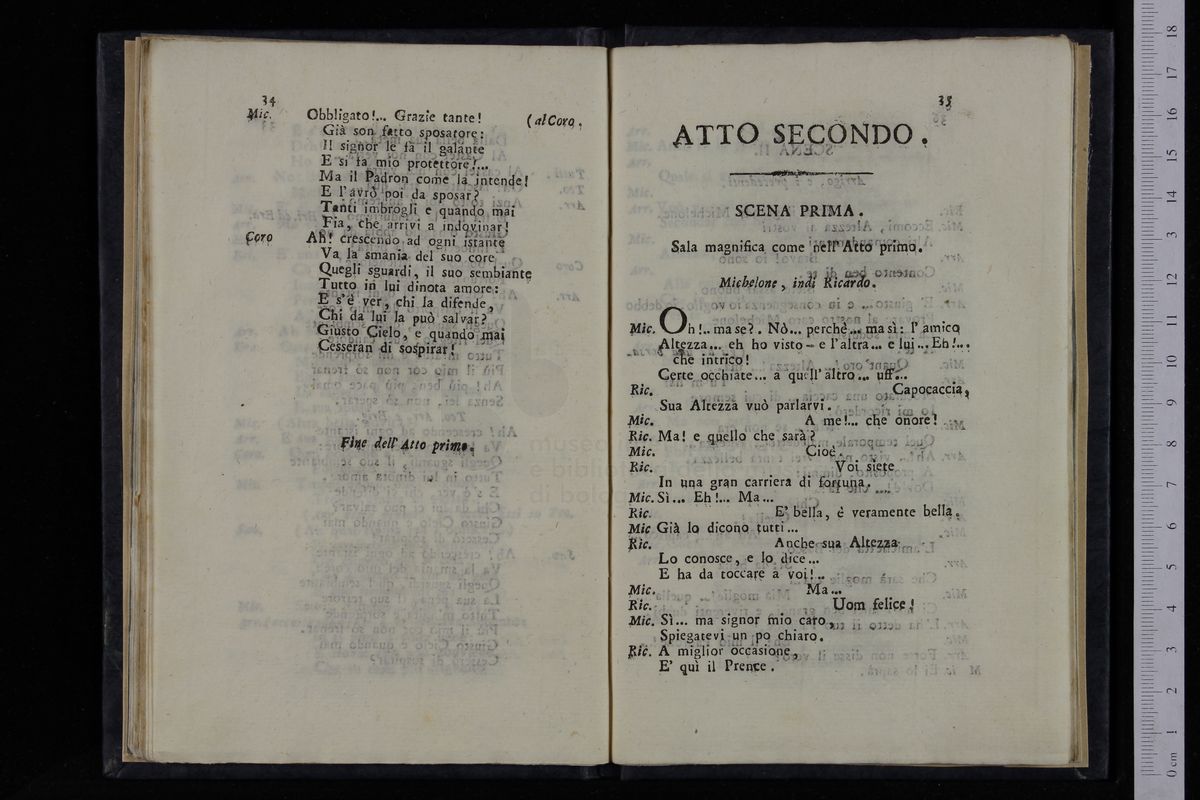 34
Mic. Obbligato!... Grazie tante! (al Coro.
Già son fatto sposatore:
Il signor le fa il galante
E si fa mio protettore!...
Ma il Padron come la intende!
E l'avrò poi da sposar?
Tanti imbrogli e quando mai
Fia, che arrivi a indovinar!
Coro Ah! crescendo ad ogni istante
Va la smania del suo core
Quegli sguardi, il suo sembiante
Tutto in lui dinota amore:
E s'è ver, chi la difende,
Chi da lui la può salvar?
Giusto Cielo, e quando mai
Cesseran di sospirar!
Fine dell'Atto primo.
35
ATTO SECONDO.
SCENA PRIMA.
Sala magnifica come nell'Atto primo.
Michelone, indi Ricardo.
Mic. Oh!.. ma se?. Nò... perchè... ma sì: l'amico
Altezza... eh ho visto - e l'altra... e lui... Eh!...
che intrico!
Certe occhiate... a quell'altro... uff...
Ric. Capocaccia,
Sua Altezza vuò parlarvi.
Mic. A me!... che onore!
Ric. Ma! e quello che sarà?
Mic. Cioè.
Ric. Voi siete
In una gran carriera di fortuna.
Mic. Sì... Eh!... Ma...
Ric. E' bella, è veramente bella.
Mic Già lo dicono tutti...
Ric. Anche sua Altezza
Lo conosce, e lo dice...
E ha da toccare a voi!..
Mic. Ma...
Ric. Uom felice!
Mic. Sì... ma signor mio caro,
Spiegatevi un po chiaro.
Ric. A miglior occasione,
E' quì il Prence.